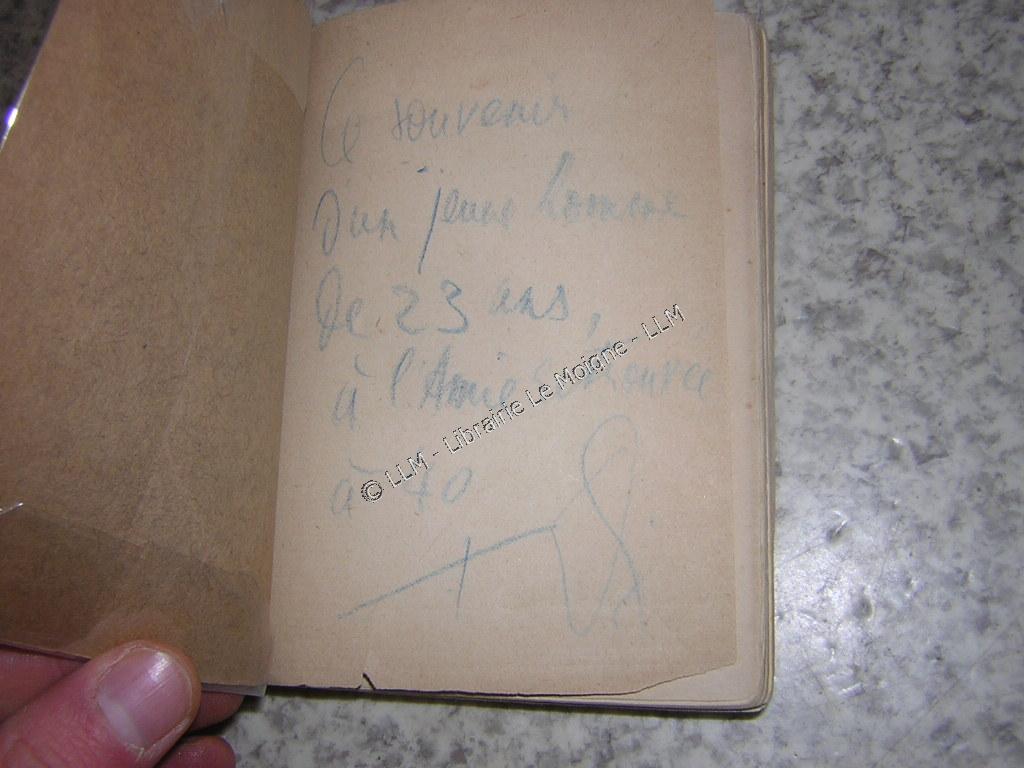 Ce souvenir
d'un jeune homme
de 23 ans,
à l'Amie retrouvée
à 40
© LLM - Librairie Le Moigne - LLM